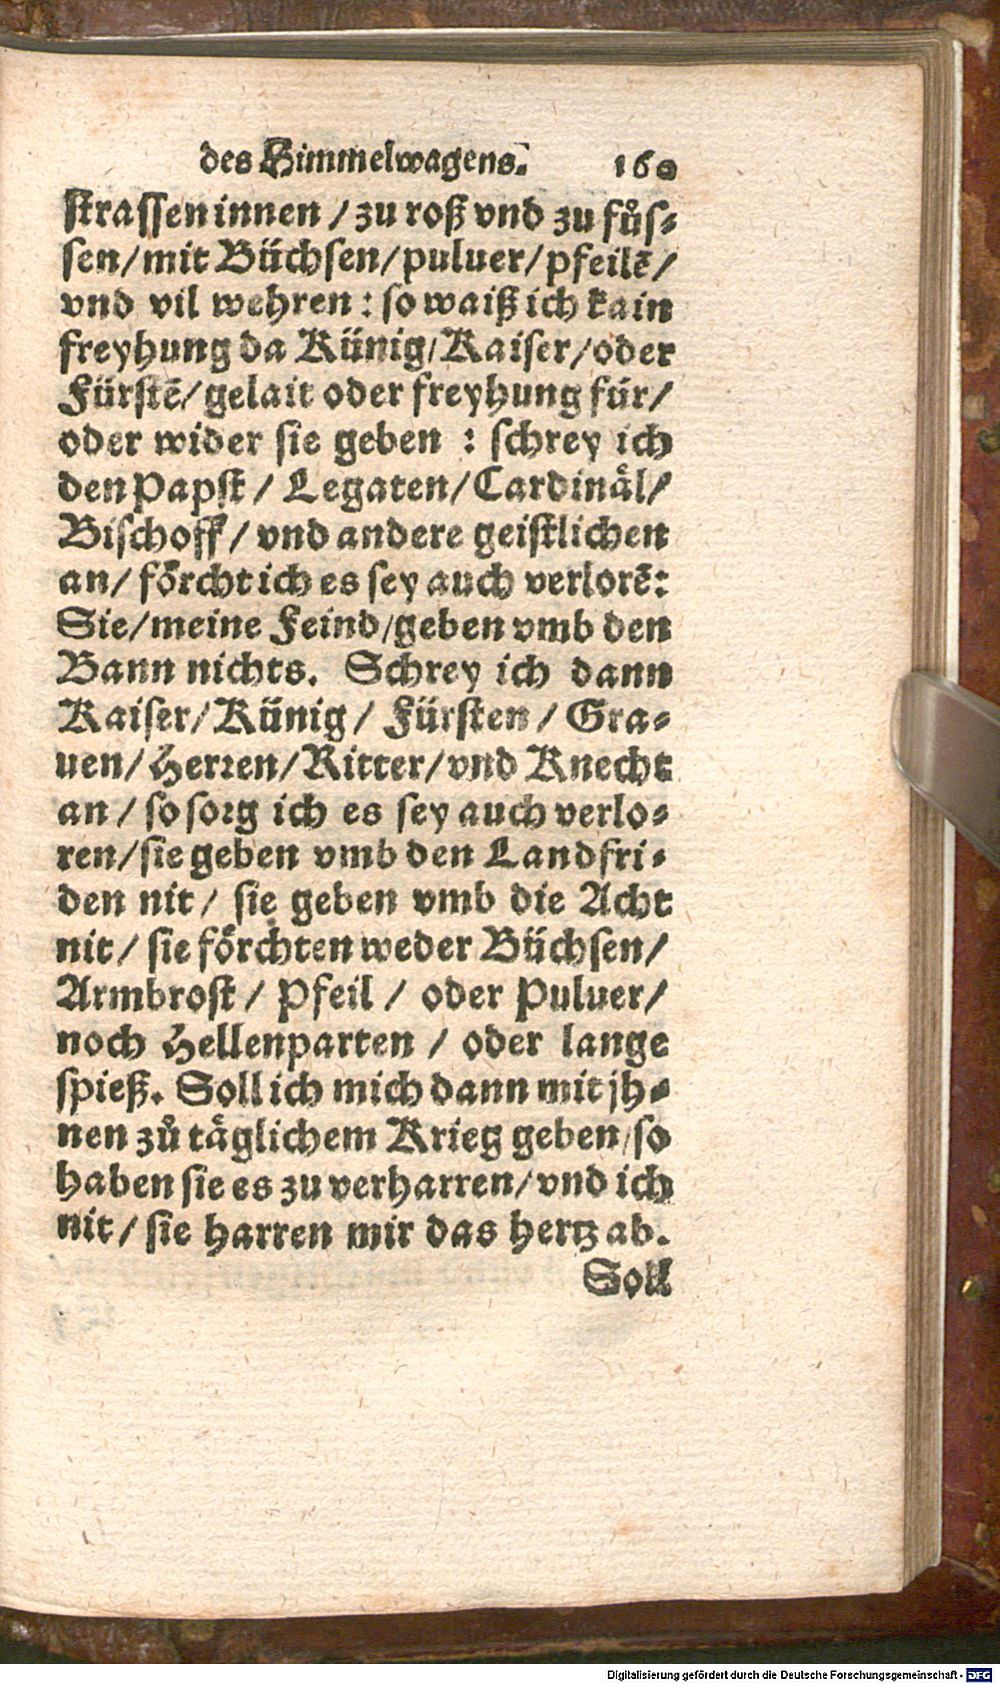 des Himmelwagens. 160
strassen innen / zu roß vnd zu fůs-
sen/mit Büchsen/puluer/pfeilē/
vnd vil wehren : so waiß ich kain
freyhung da Künig/Kaiser/oder
Fürstē/gelait oder freyhung für/
oder wider sie geben : schrey ich
den Papst / Legaten/Cardinäl/
Bischoff / vnd andere geistlichen
an/ förcht ich es sey auch verlorē:
Sie/meine Feind/geben vmb den
Bann nichts. Schrey ich dann
Kaiser/Künig / Fürsten / Gra-
uen/Herren/Ritter/vnd Knecht
an / so sorg ich es sey auch verlo-
ren/sie geben vmb den Landfri-
den nit / sie geben vmb die Acht
nit / sie förchten weder Büchsen/
Armbrost / Pfeil / oder Puluer/
noch Hellenparten / oder lange
spieß. Soll ich mich dann mit jh-
nen zů täglichem Krieg geben/so
haben sie es zu verharren/vnd ich
nit / sie harren mir das hertz ab.
Soll
Digitalisierung gefördert durch die Deutsche Forschungsgemeinschaft - DFG